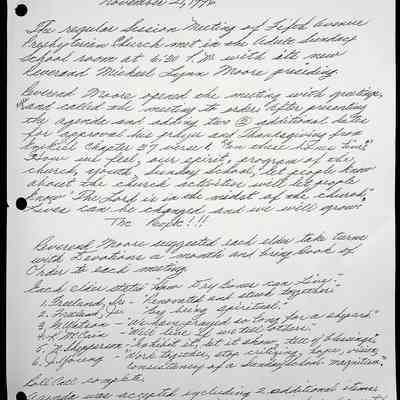 November 21, 199
The regular Session Meeting of Fifth Avenue
Presbyterian Church met in the Adult Sunday
School room at 6:30 P.M. with its new
Reverend Michael Lynn Moore presiding.
Reverend Moore opened the meeting with greetings,
and called the meeting to order. After presenting
the agenda and adding two @ additional items
for approval his prayer and Thanksgiving from
Ezekiel Chapter 37 verse 1, "Can these bones live?"
How we feel, our spirit, program of the
church, youth, Sunday School, let people know
about the church activities will let people
know "The Lord is in the midst of the church,"
Lives can be changed and we will grow.
The People!!!
Reverend Moore suggested each elder take turns
with Devotions a month and bring Book of
Order to each meeting.
Each elder states how Dry bones can Live:
1. Freeland, "Renovated and stand together."
2. Freeland, "by being spiritual."
3. Watson - "We have prayed so long for a shepard."
4. McCain - "Will live if we tell others."
5. Shepperson - "Exhibit it, let it show, tell of blessings."
6. Young - "Work together, stop critizing, hope, vision,
consistency of a Sunday School magnition."
Roll Call complete.
Agenda was accepted including 2 additional items